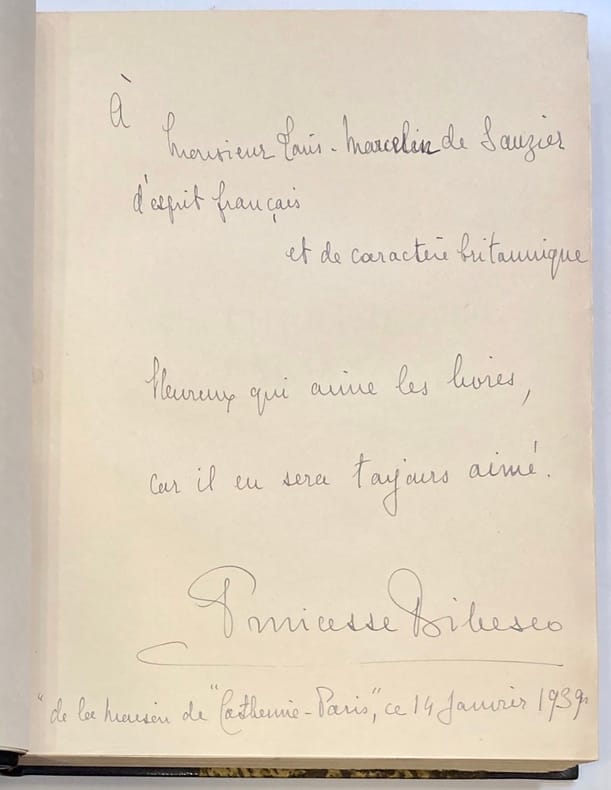 À
Monsieur Louis-Marcelin de Lauzier
d'esprit français
et de caractère britannique
Heureux qui aime les livres,
car il en sera toujours aimé.
Princesse Bibesco
"de la maison de "Catherine-Paris", ce 14 Janvier 1939